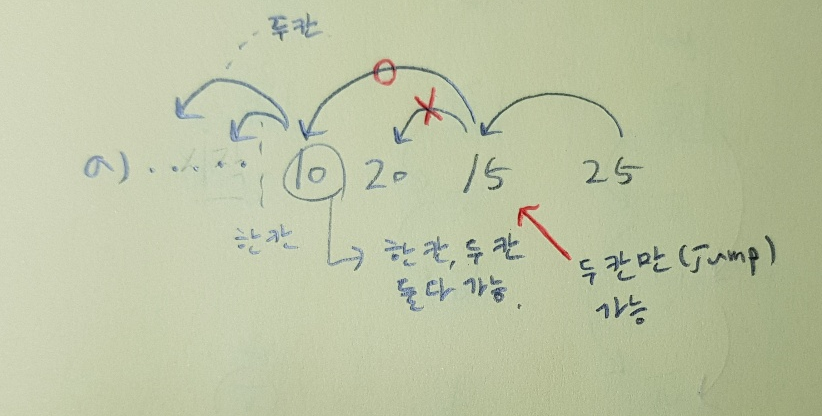 두칸
a) ...... 10 20 15 25
한칸
한칸, 두칸
둘다 가능.
두칸만 (Jump)
가능